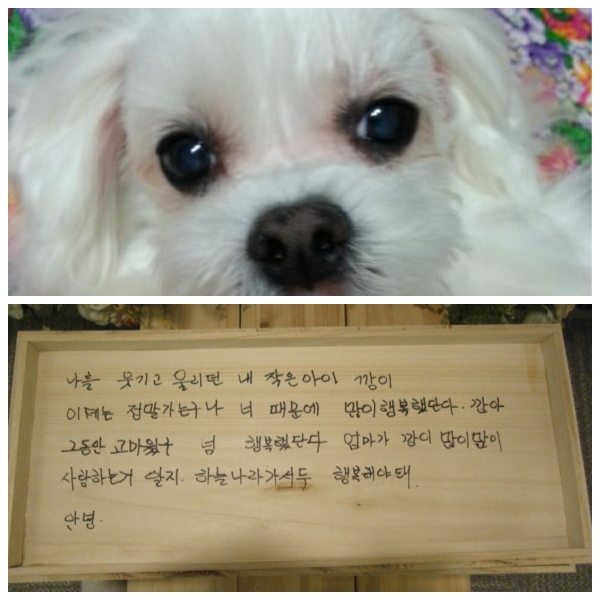 나를 웃기고 울리던 내 작은아이 깜이
이제는 정말가는구나 너 때문에 많이행복했단다. 깜아
그동안 고마웠구 넘 행복했단다 엄마가 깜이 많이많이
사랑하는거 알지. 하늘나라가서두 행복해야돼.
안녕.